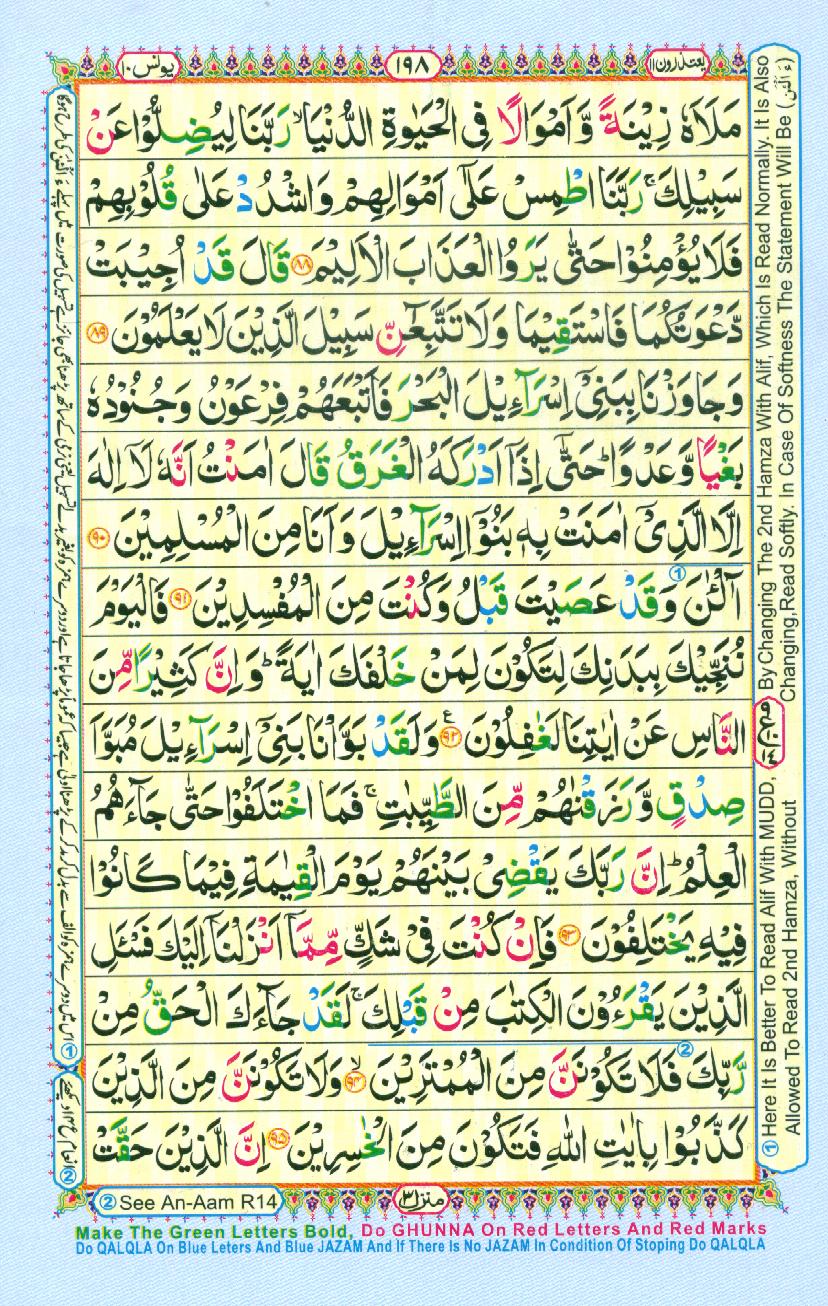 یعتذرون ۱۱
۱۹۸
یونس ۱۰
مَلَاَهٗ زِیْنَةً وَّاَمْوَالًا فِی الْحَیٰوةِ الدُّنْیَا ۙ رَبَّنَا لِیُضِلُّوْا عَنْ
سَبِیْلِكَ ۚ رَبَّنَا اطْمِسْ عَلٰۤی اَمْوَالِهِمْ وَاشْدُدْ عَلٰی قُلُوْبِهِمْ
فَلَا یُؤْمِنُوْا حَتّٰی یَرَوُا الْعَذَابَ الْاَلِیْمَ ۝۸۸ قَالَ قَدْ اُجِیْبَتْ
دَّعْوَتُكُمَا فَاسْتَقِیْمَا وَلَا تَتَّبِعٰٓنِّ سَبِیْلَ الَّذِیْنَ لَا یَعْلَمُوْنَ ۝۸۹
وَجَاوَزْنَا بِبَنِیْۤ اِسْرَآءِیْلَ الْبَحْرَ فَاَتْبَعَهُمْ فِرْعَوْنُ وَجُنُوْدُهٗ
بَغْیًا وَّعَدْوًا ؕ حَتّٰۤی اِذَاۤ اَدْرَكَهُ الْغَرَقُ قَالَ اٰمَنْتُ اَنَّهٗ لَاۤ اِلٰهَ
اِلَّا الَّذِیْۤ اٰمَنَتْ بِهٖ بَنُوْۤا اِسْرَآءِیْلَ وَاَنَا مِنَ الْمُسْلِمِیْنَ ۝۹۰
آٰلْـٰٔنَ وَقَدْ عَصَیْتَ قَبْلُ وَكُنْتَ مِنَ الْمُفْسِدِیْنَ ۝۹۱ فَالْیَوْمَ
نُنَجِّیْكَ بِبَدَنِكَ لِتَكُوْنَ لِمَنْ خَلْفَكَ اٰیَةً ؕ وَاِنَّ كَثِیْرًا مِّنَ
النَّاسِ عَنْ اٰیٰتِنَا لَغٰفِلُوْنَ ۝۹۲ ع وَلَقَدْ بَوَّاْنَا بَنِیْۤ اِسْرَآءِیْلَ مُبَوَّاَ
صِدْقٍ وَّرَزَقْنٰهُمْ مِّنَ الطَّیِّبٰتِ ۚ فَمَا اخْتَلَفُوْا حَتّٰی جَآءَهُمُ
الْعِلْمُ ؕ اِنَّ رَبَّكَ یَقْضِیْ بَیْنَهُمْ یَوْمَ الْقِیٰمَةِ فِیْمَا كَانُوْا
فِیْهِ یَخْتَلِفُوْنَ ۝۹۳ فَاِنْ كُنْتَ فِیْ شَكٍّ مِّمَّاۤ اَنْزَلْنَاۤ اِلَیْكَ فَسْـَٔلِ
الَّذِیْنَ یَقْرَءُوْنَ الْكِتٰبَ مِنْ قَبْلِكَ ۚ لَقَدْ جَآءَكَ الْحَقُّ مِنْ
رَّبِّكَ فَلَا تَكُوْنَنَّ مِنَ الْمُمْتَرِیْنَ ۝۹۴ ۙ وَلَا تَكُوْنَنَّ مِنَ الَّذِیْنَ
كَذَّبُوْا بِاٰیٰتِ اللّٰهِ فَتَكُوْنَ مِنَ الْخٰسِرِیْنَ ۝۹۵ اِنَّ الَّذِیْنَ حَقَّتْ
① Here It Is Better To Read Alif With MUDD, By Changing The 2nd Hamza With Alif, Which Is Read Normally. It Is Also
Allowed To Read 2nd Hamza, Without Changing,Read Softly. In Case Of Softness The Statement Will Be (ءَ اَلْـٰٔنَ)
منزل ۳
② See An-Aam R14
Make The Green Letters Bold, Do GHUNNA On Red Letters And Red Marks
Do QALQLA On Blue Leters And Blue JAZAM And If There Is No JAZAM In Condition Of Stoping Do QALQLA